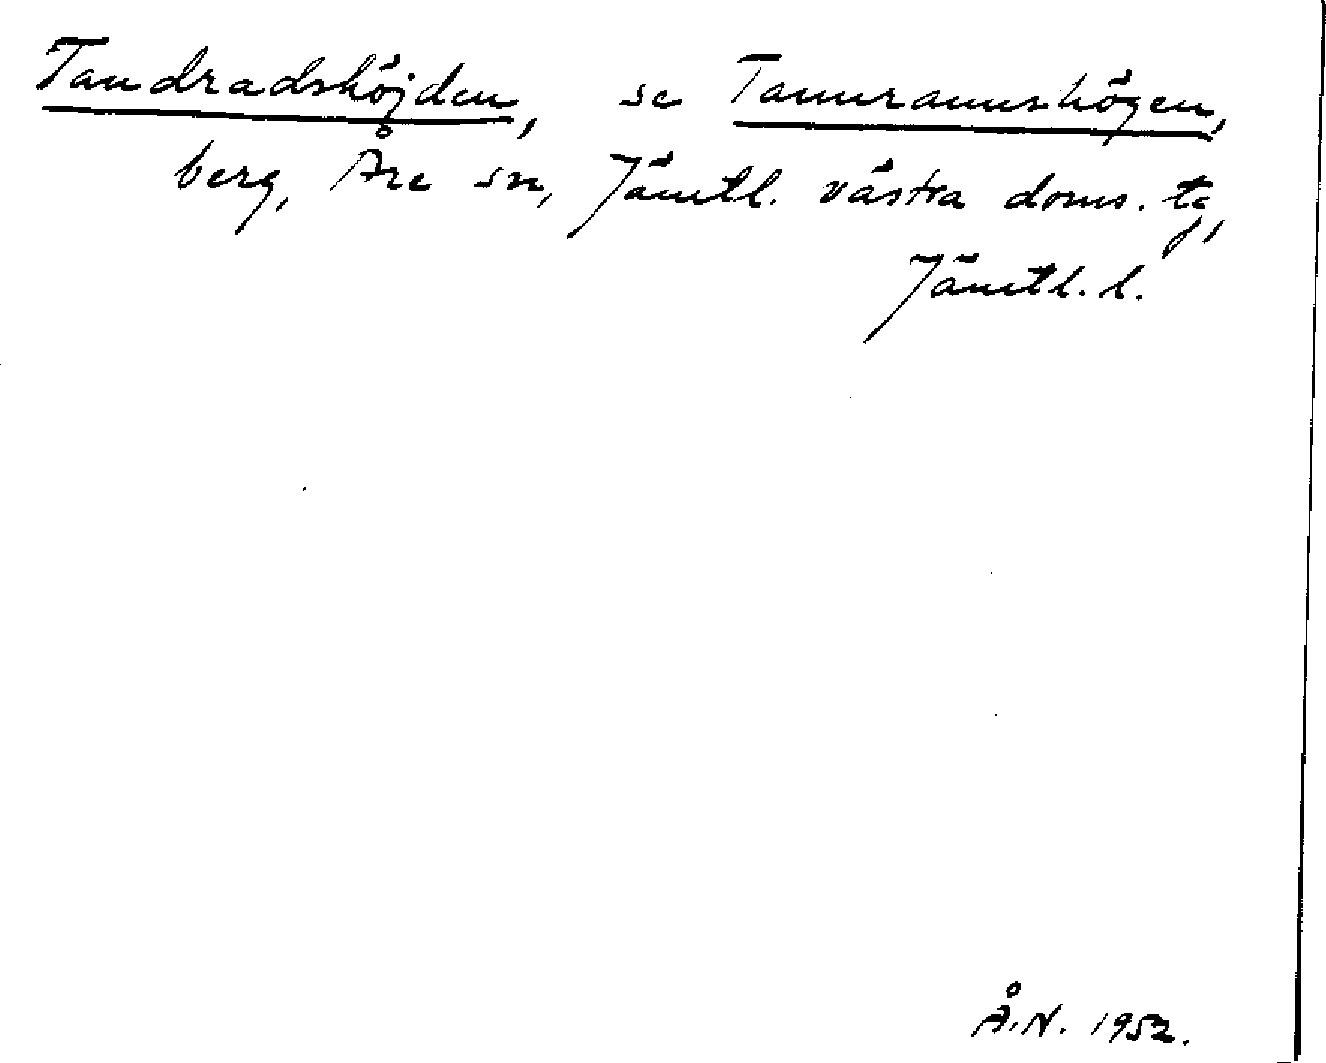 Tandradshöjden, se Tannramshögen,
berg, Åre sn, Jämtl. västra doms. tg,
Jämtl. l.
Å.N. 1952.